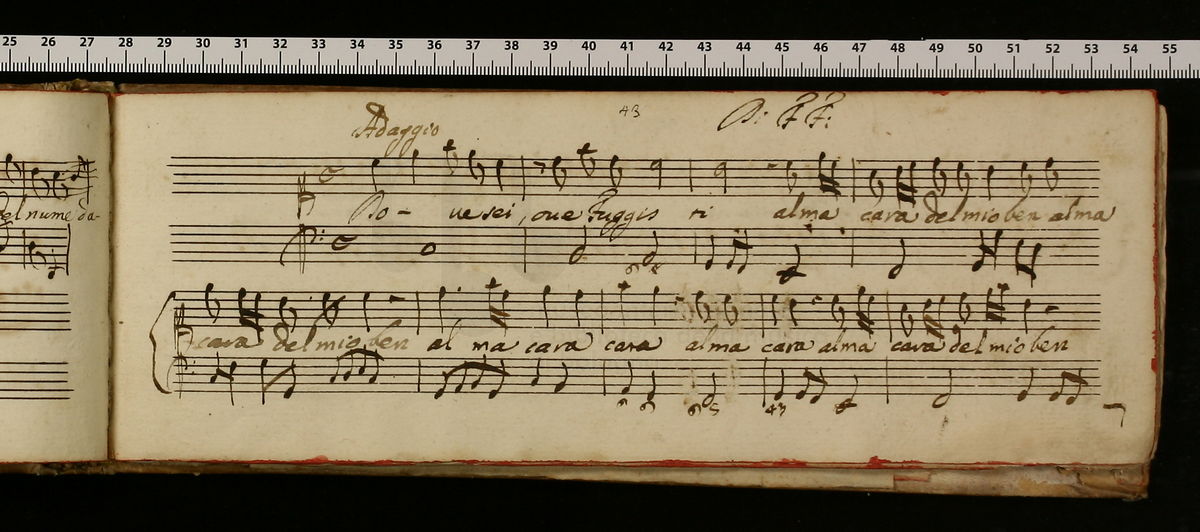 25 26 27 28 29 30 31 32 33 34 35 36 37 38 39 40 41 42 43 44 45 46 47 48 49 50 51 52 53 54 55
43
Adaggio
del nume da-
Do- ve sei, ove fuggis ti alma cara del mio ben alma
cara del mio ben al ma cara cara alma cara alma cara del mio ben
43